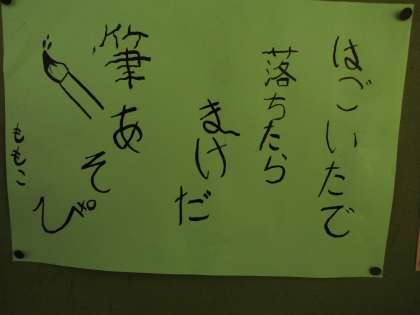 はごいたで
落ちたら
まけだ
筆あそび
ももこ